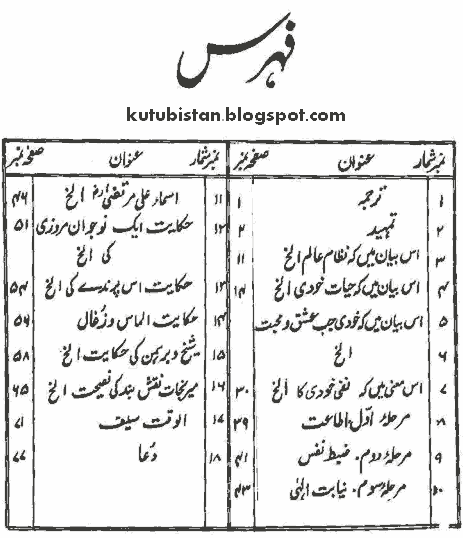 فہرس
kutubistan.blogspot.com
نمبر شمار عنوان صفحہ نمبر
۱ ترجمہ ۱
۲ تمہید ۲
۳ اس بیان میں کہ نظام عالم الخ ۱۱
۴ اس بیان میں کہ حیات خودی الخ ۱۴
۵ اس بیان میں کہ خودی جب عشق و محبت
۶ الخ
۷ اس معنی میں کہ نفی خودی کا الخ ۳۰
۸ مرحلۂ اوّل اطاعت ۳۹
۹ مرحلۂ دوم۔ ضبط نفس ۴۱
۱۰ مرحلۂ سوم۔ نیابت الٰہی ۴۳
نمبر شمار عنوان صفحہ نمبر
۱۱ اسماء علی مرتضیٰ الخ ۴۶
۱۲ حکایت ایک نوجوان مروزی ۵۱
کی الخ
۱۳ حکایت اس پرندے کی الخ ۵۴
۱۴ حکایت الماس و زغال ۵۶
۱۵ شیخ و برہمن کی حکایت الخ ۵۸
۱۶ میر نجات نقش بند کی نصیحت الخ ۶۵
۱۷ الوقت سیف ۷۱
۱۸ دُعا ۷۷